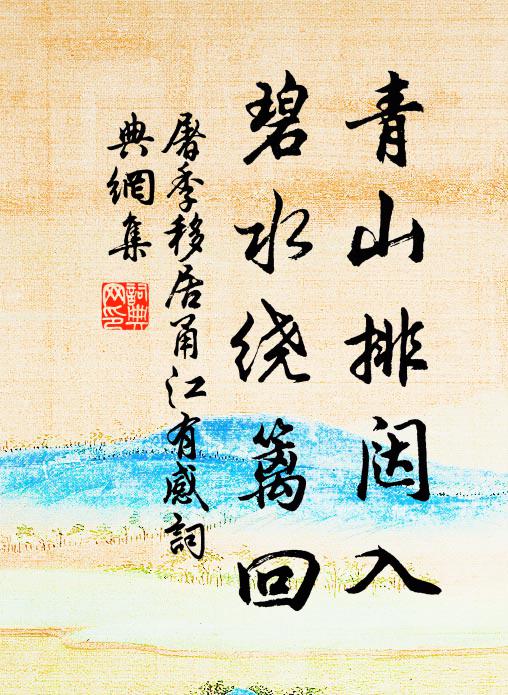 青山排闼入
碧水绕篱回
屠季移居甬江有感詞
典網集
詞典
网印